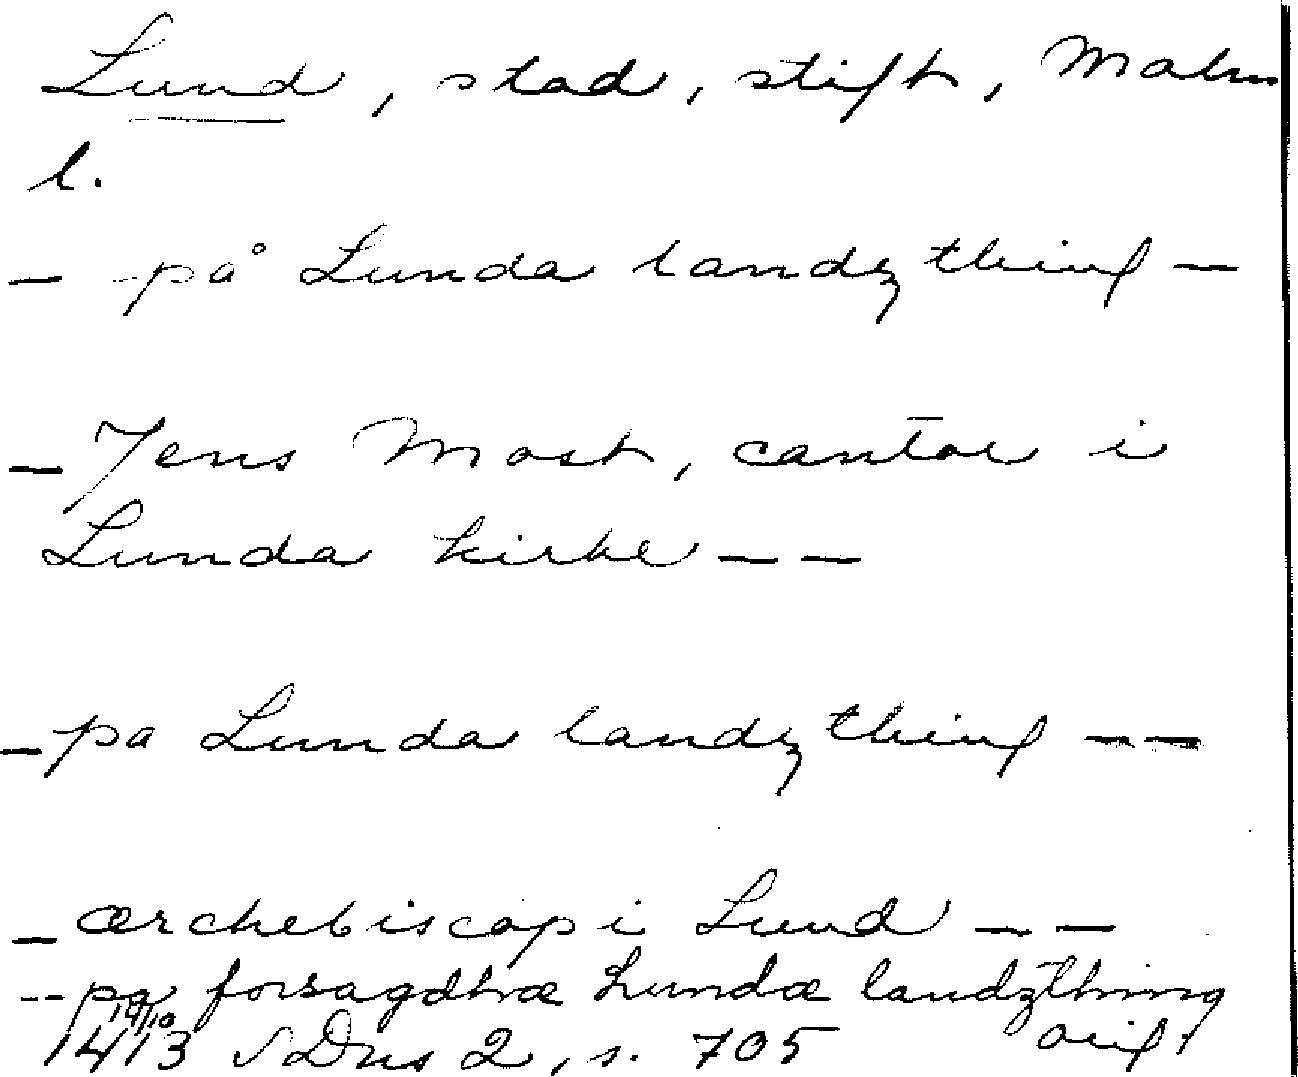 Lund, stad, stift, Malm
l.
- på Lunda landzthing -
- Jens Most, cantor i
Lunda kirke - -
- pa Lunda landzthing - -
- ærchebiscop i Lund - -
-- pa forsagdhræ Lundæ landzthing
14/10
1413 SDns 2, s. 705 orig.